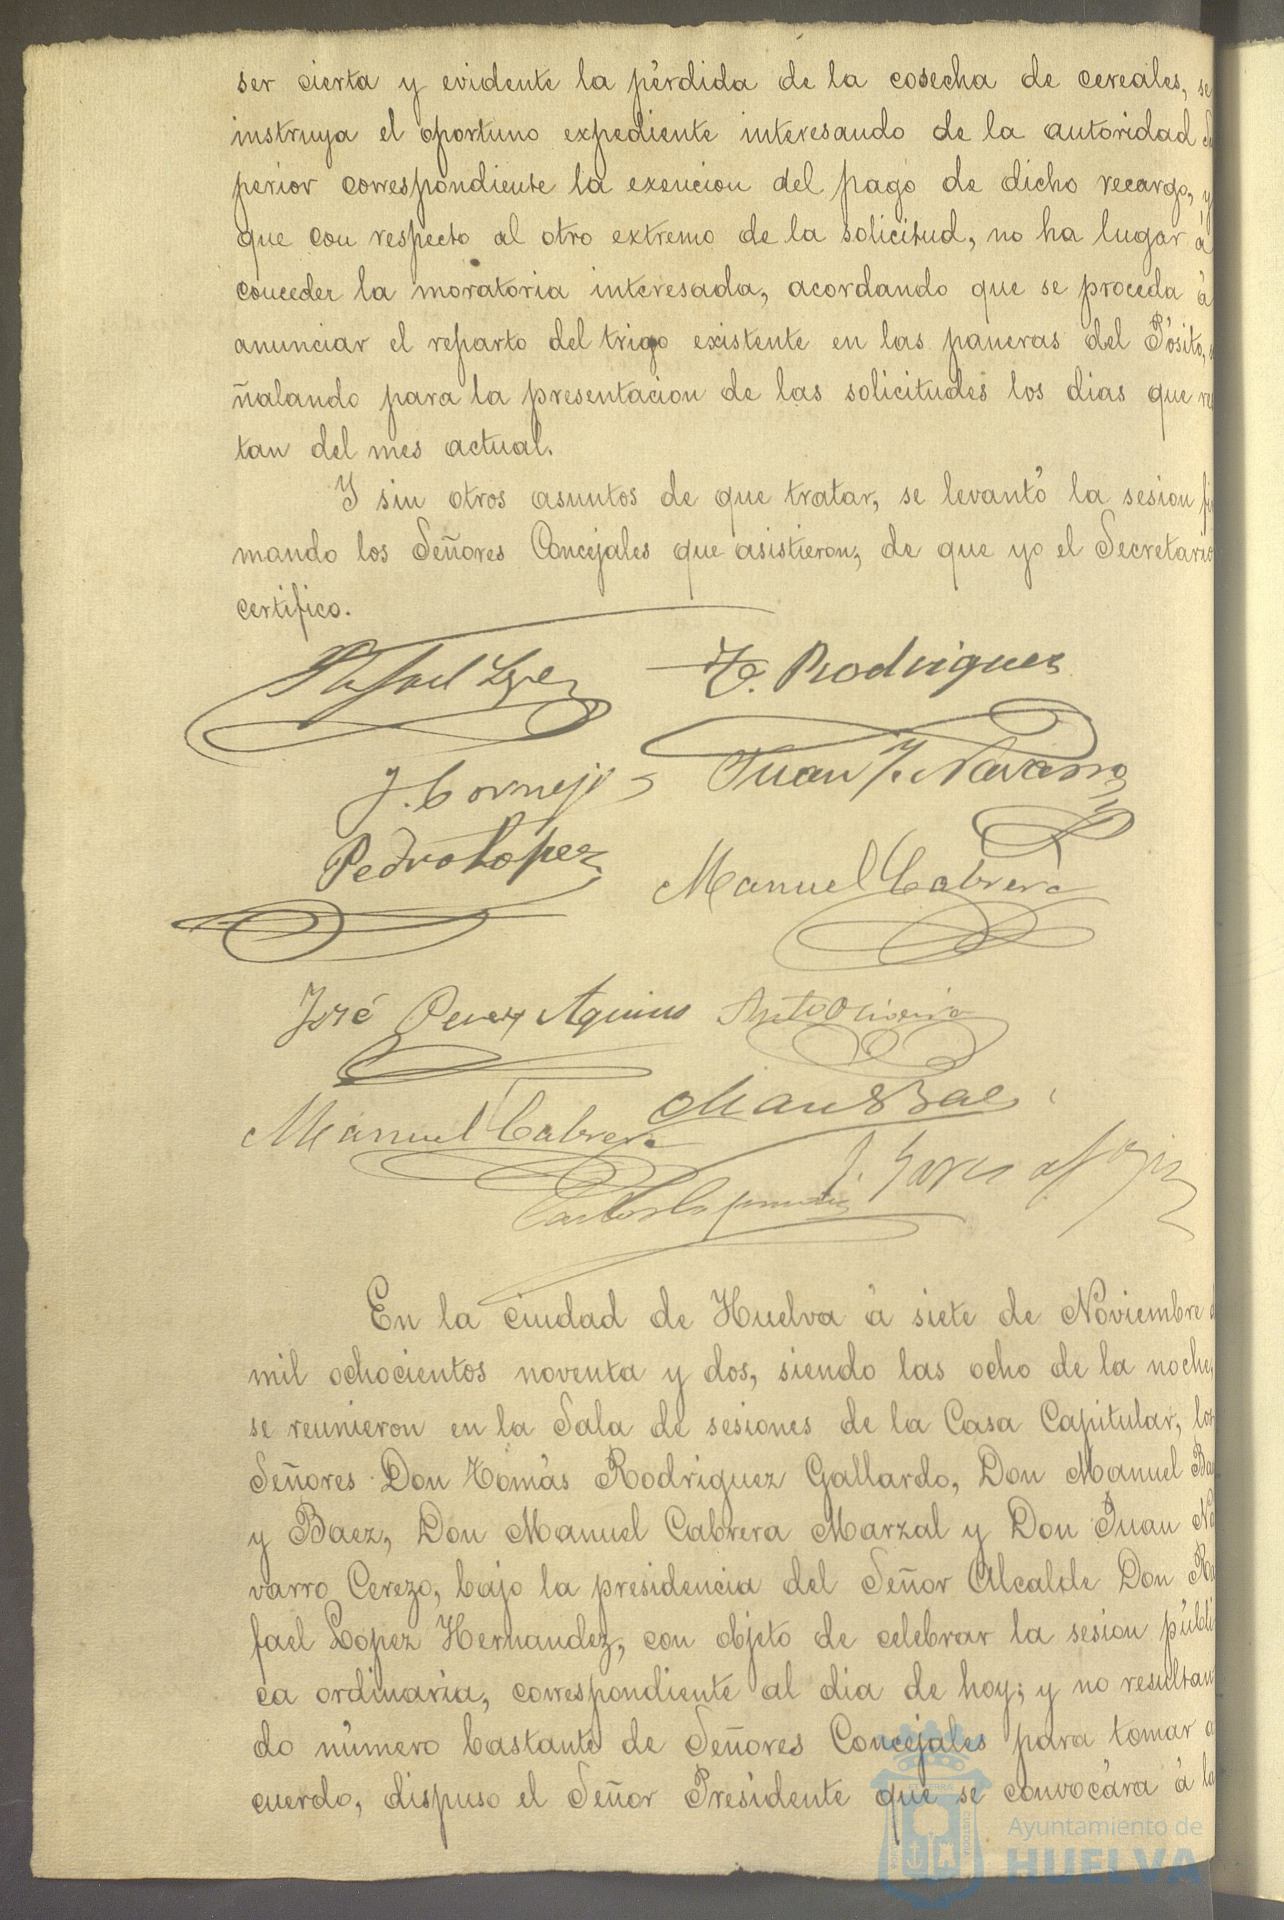 ser cierta y evidente la pérdida de la cosecha de cereales, se
instruya el oportuno expediente interesando de la autoridad Su
perior correspondiente la exencion del pago de dicho recargo, y
que con respecto al otro extremo de la solicitud, no ha lugar á
conceder la moratoria interesada, acordando que se proceda á
anunciar el reparto del trigo existente en las paneras del Pósito, s
ñalando para la presentacion de las solicitudes los dias que re
tan del mes actual.
Y sin otros asuntos de que tratar, se levantó la sesion fir
mando los Señores Concejales que asistieron, de que yo el Secretario
certifico.
Rafael Lopez T. Rodriguez
J. Cornejo Juan J. Navarro
Pedro Lopez Manuel Cabrera
José Perez Ant.o Oliveira
Manuel Cabrera Man Baez
En la ciudad de Huelva á siete de Noviembre d
mil ochocientos noventa y dos, siendo las ocho de la noche,
se reunieron en la Sala de sesiones de la Casa Capitular, los
Señores Don Tomás Rodriguez Gallardo, Don Manuel Ba
y Baez, Don Manuel Cabrera Marzal y Don Juan Na
varro Cerezo, bajo la presidencia del Señor Alcalde Don Ra
fael Lopez Hernandez, con objeto de celebrar la sesion públi
ca ordinaria, correspondiente al dia de hoy; y no resultan
do número bastante de Señores Concejales para tomar a
cuerdo, dispuso el Señor Presidente que se convocára á la
Ayuntamiento de
HUELVA